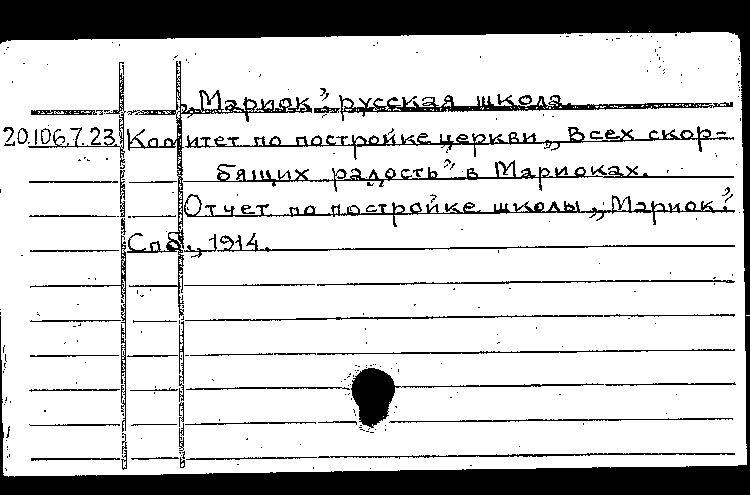 „Мариок”, русская школа.
20.106.7.23. Комитет по постройке церкви „Всех скор=
бящих радость” в Мариоках.
Отчет по постройке школы „Мариок”.
Спб., 1914.